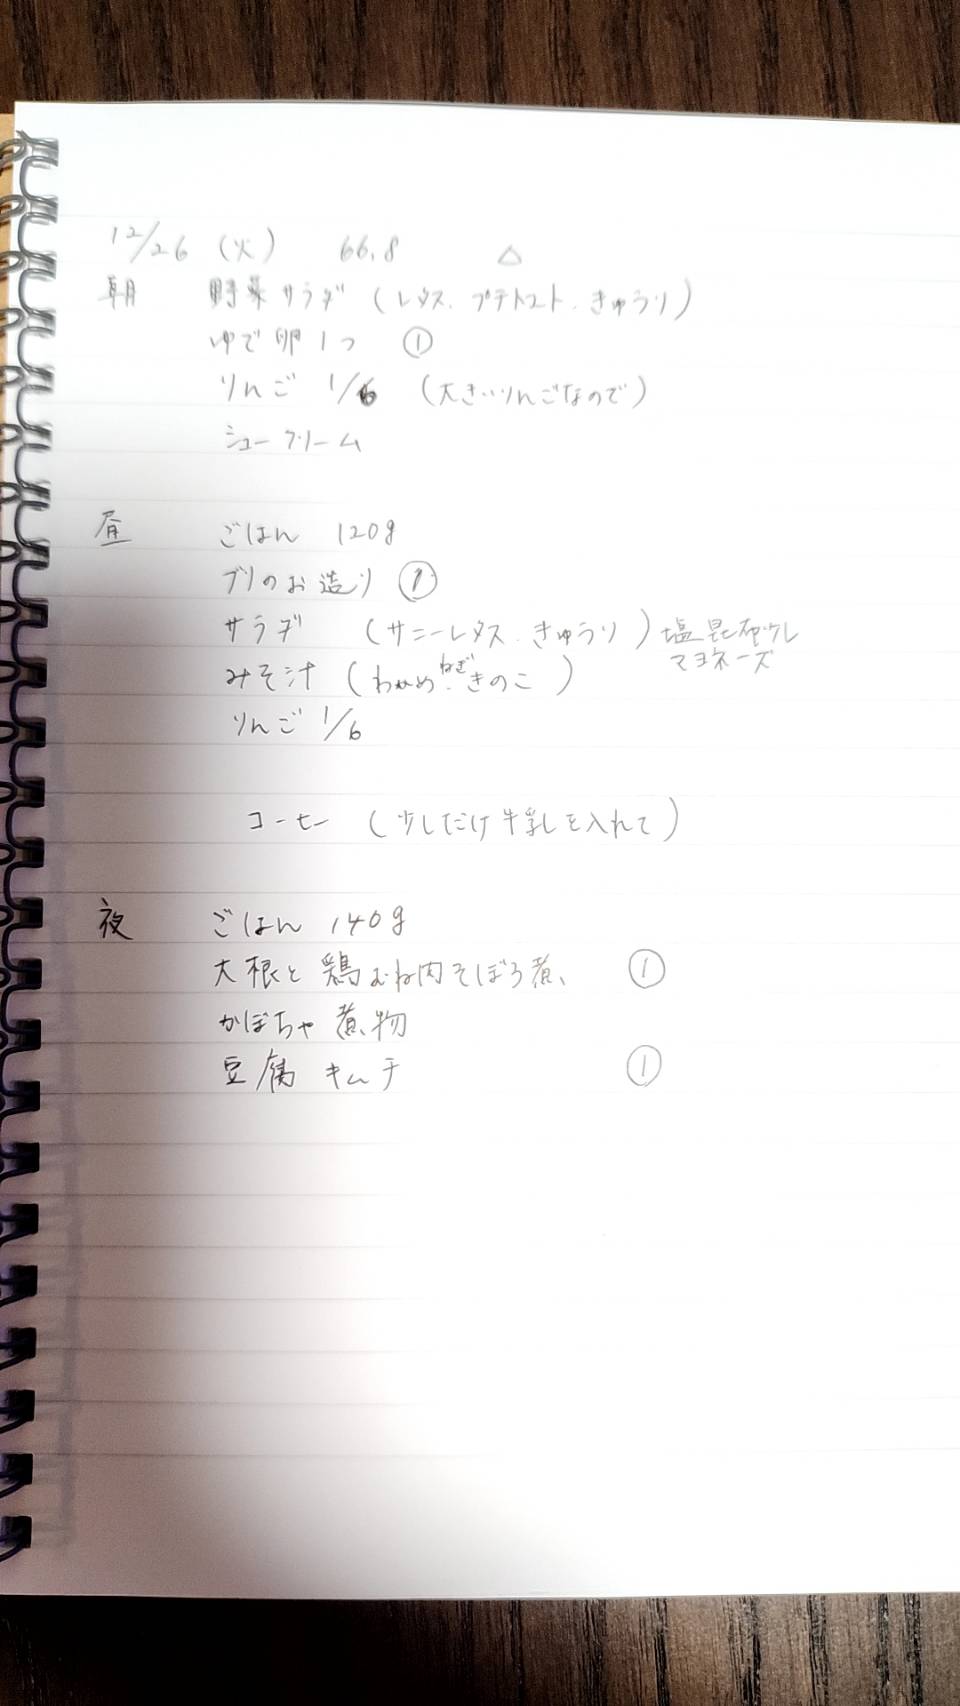 12/26 (火) 66.8 △
朝 野菜サラダ (レタス、プチトマト、きゅうり)
ゆで卵1つ ①
りんご 1/6 (大きいりんごなので)
シュークリーム
昼 ごはん 120g
ブリのお造り ①
サラダ (サニーレタス、きゅうり) 塩昆布少し
マヨネーズ
みそ汁 (わかめ、ねぎ、きのこ)
りんご 1/6
コーヒー (少しだけ牛乳を入れて)
夜 ごはん 140g
大根と鶏むね肉そぼろ煮 ①
かぼちゃ煮物
豆腐キムチ ①